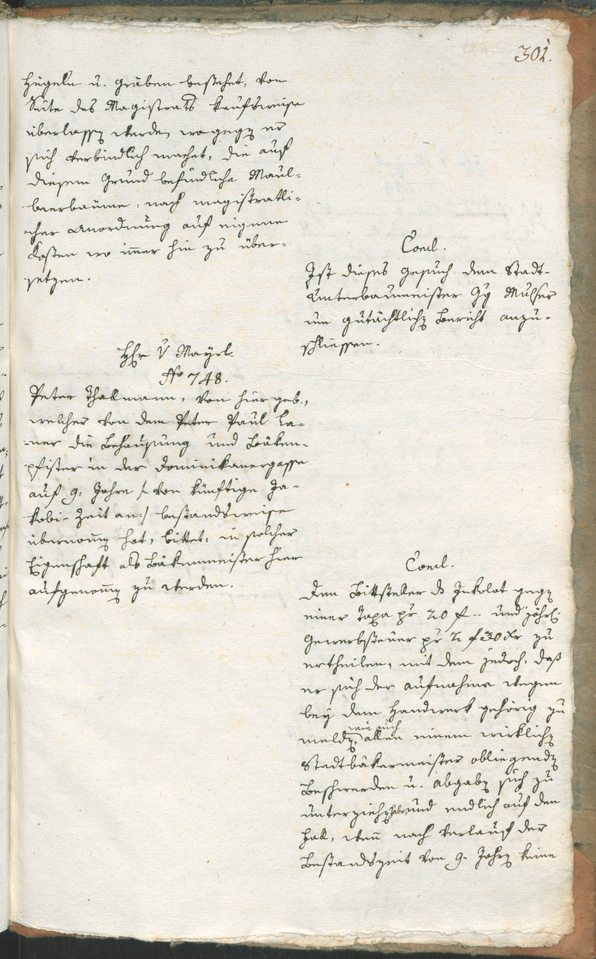 301.
Hügeln u. Gräben bestehet, von
Seite des Magistrats kaufsweise
überlassen werden, wogegen er
sich verbindlich machet, die auf
diesem Grund befindliche Maul-
beerbäume, nach magistratli-
cher Anordnung auf eigene
Kosten wo immer hin zu über-
setzen.
Concl.
Ist dieses Gesuch dem Stadt-
Unterbaumeister Jg Mulser
um gutächtlichen Bericht anzu-
schliessen.
Hr V Mayrl.
No 748.
Peter Thalmann, von hier geb.,
welcher von dem Peter Paul La-
ner die Behausung und Bäken-
pfister in der Dominikanergasse
auf 9: Jahre /: von künftige Ja-
kobi-Zeit an :/ bestandsweise
übernommen hat, bittet, in solcher
Eigenschaft als Bäkenmeister hier
aufgenommen zu werden.
Concl.
Dem Bittsteller das Inkolat gegen
einer Taxa pr 20 f. und jährl:
Gewerbsteuer pr 2 f 30 xr zu
ertheilen, mit dem jedoch, daß
er sich der Aufnahme wegen
bey dem Handwerk gehörig zu
melden, wie auch allen einem wirklichen
Stadtbäkermeister obliegenden
Beschwerden u. Abgaben sich zu
unterziehen habe und endlich auf den
Fall, wenn nach Verlauf der
Bestandszeit von 9. Jahren keine